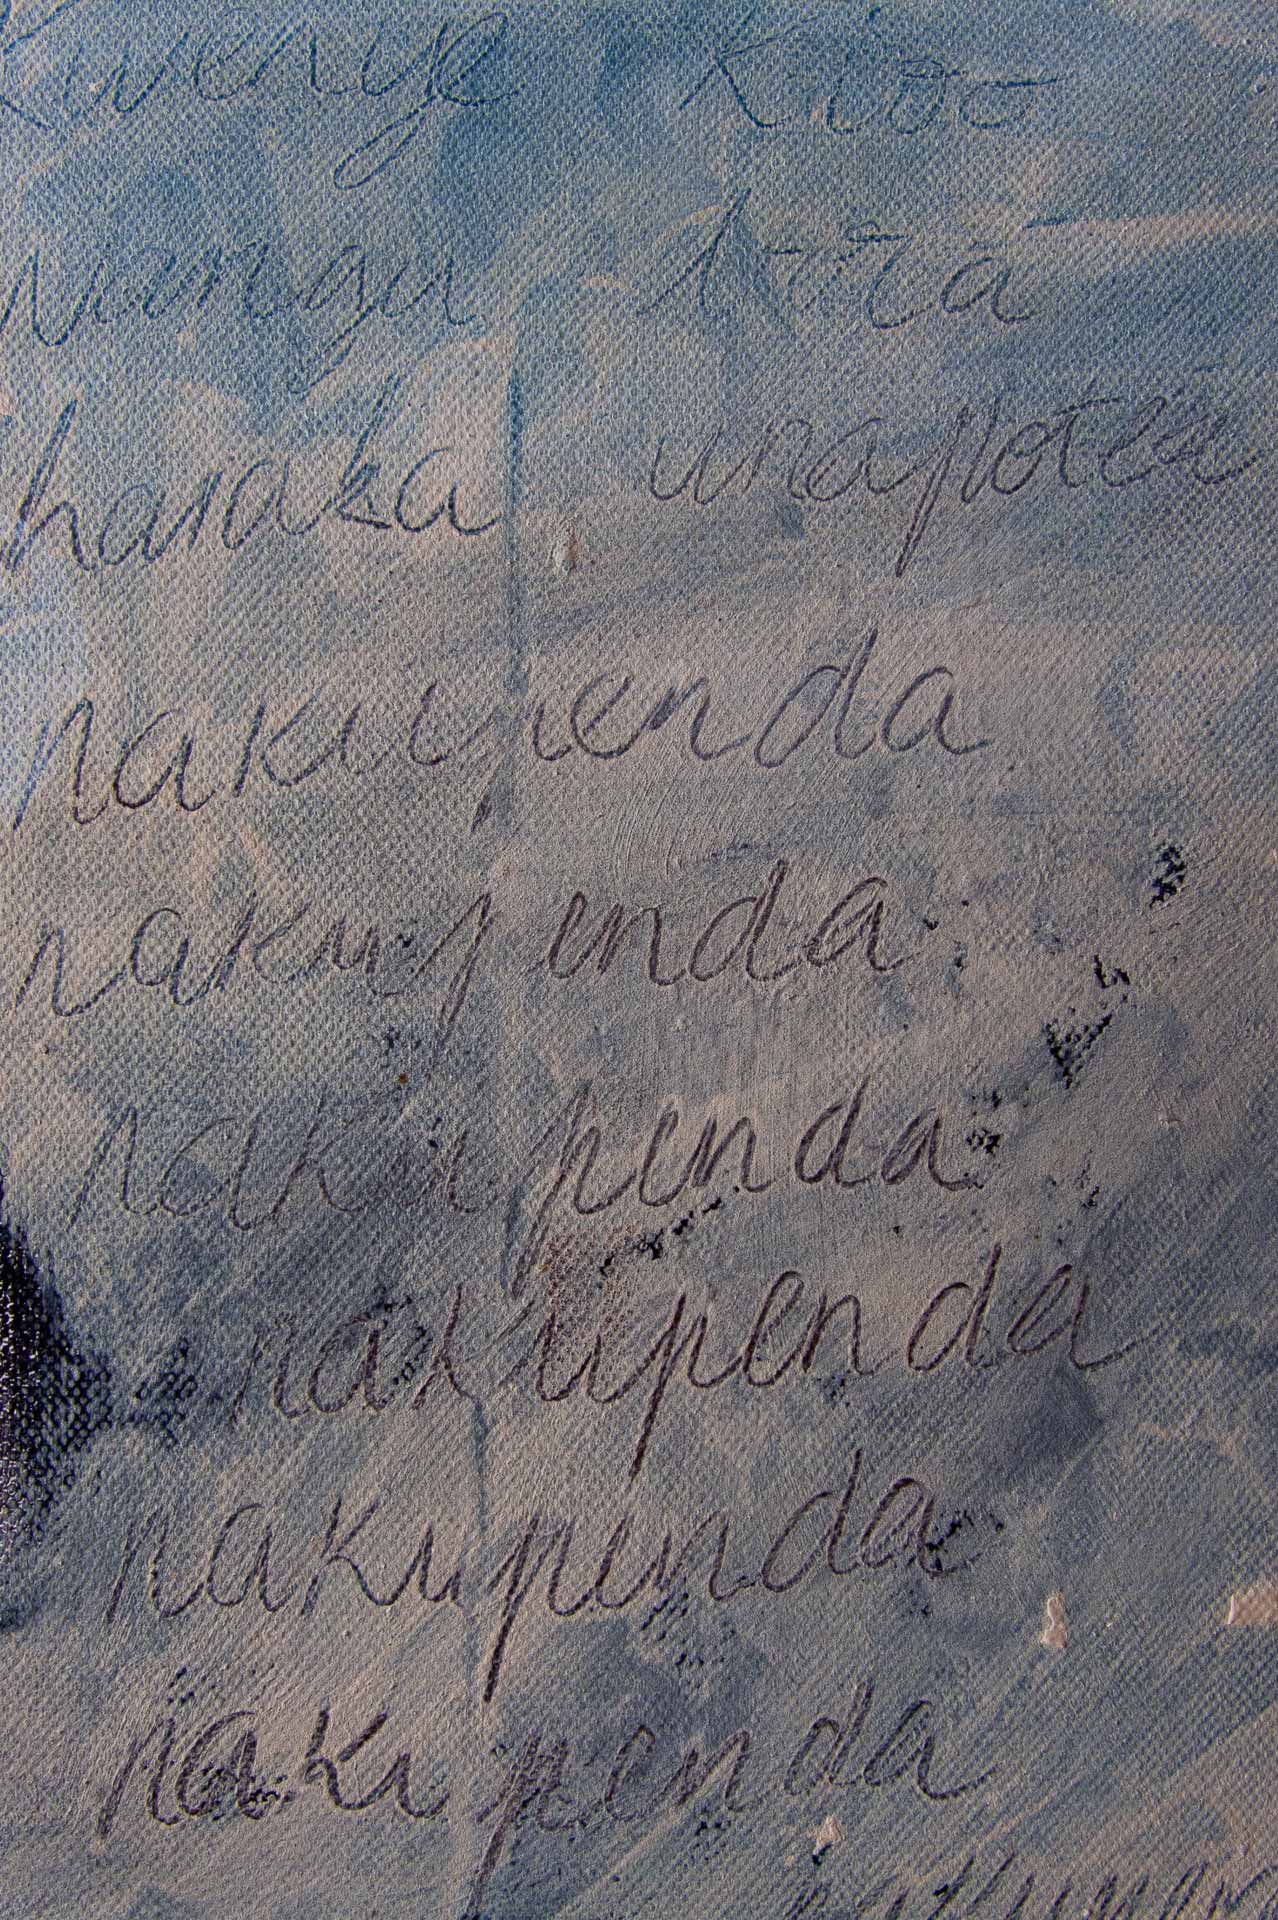 kwenye kioo
wangu
haraka unapotea
nakupenda
nakupenda
nakupenda
nakupenda
nakupenda
nakupenda